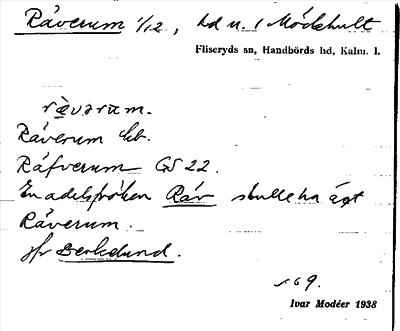 Råverum 1/12, hd u. 1 Mödehult
Fliseryds sn, Handbörds hd, Kalm. l.
Råverum kb.
Råfverum GS 22.
En adelsfröken Råv skulle ha ägt
Råverum.
jfr
s 69.
Ivar Modéer 1938